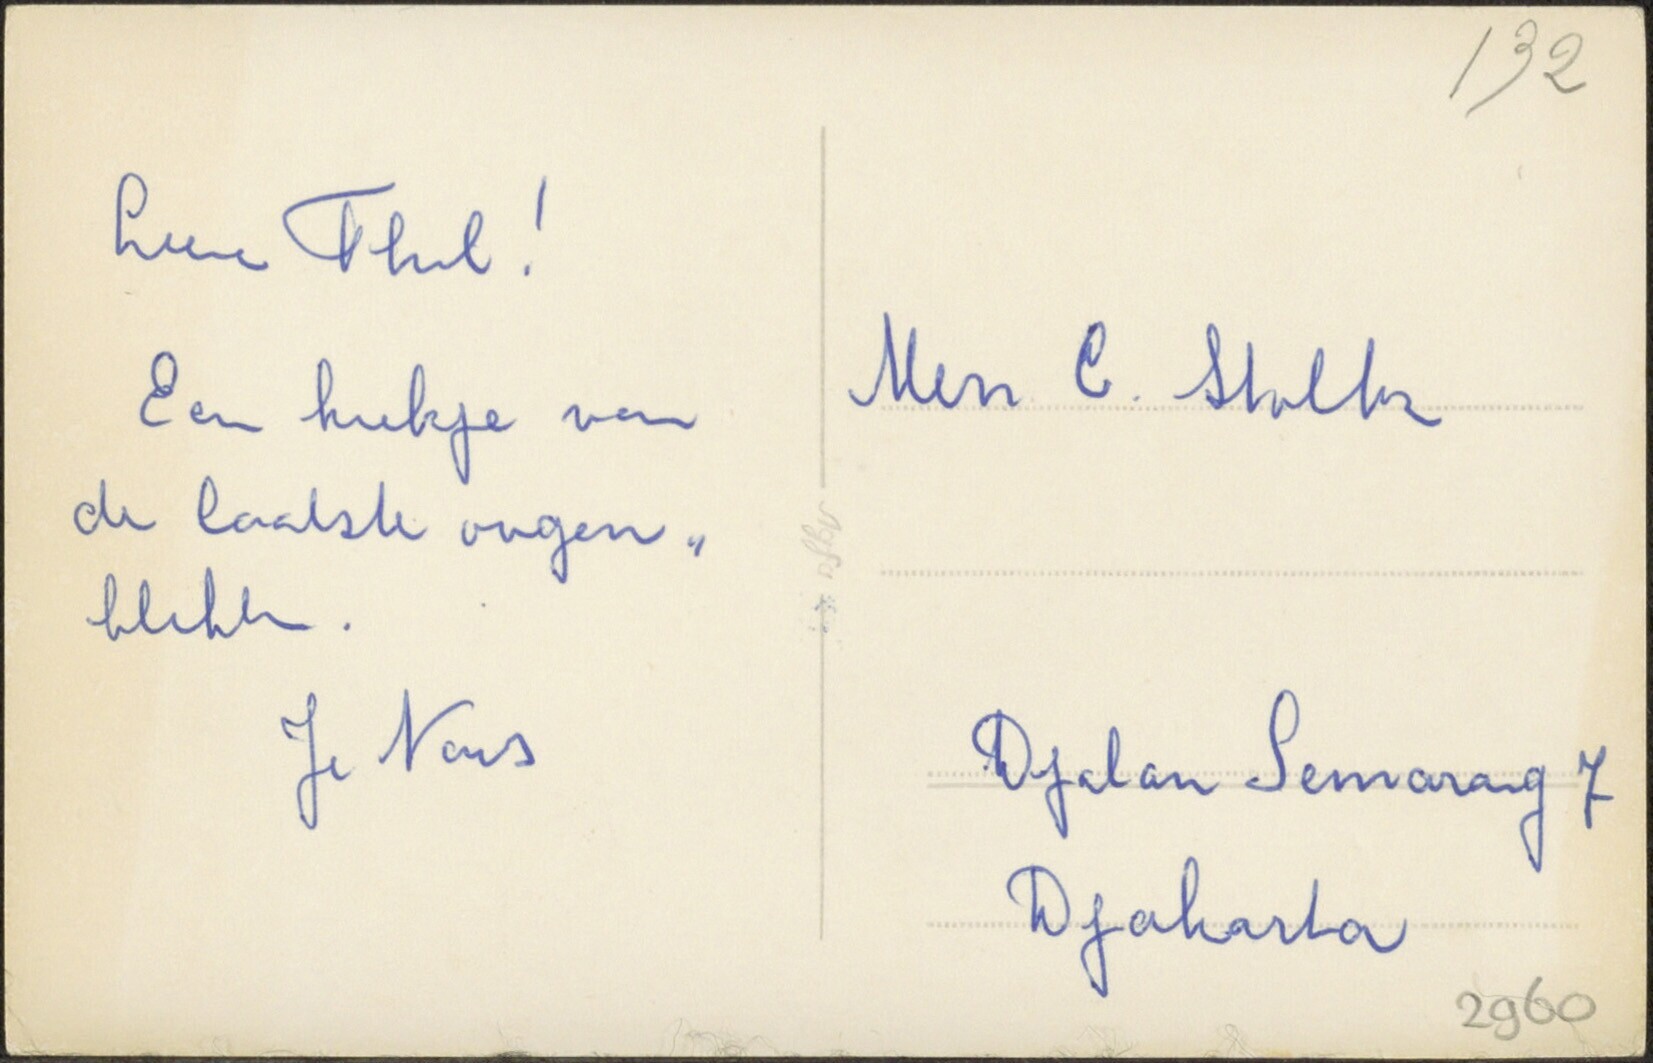 132
Lieve Thil!
Een kiekje van
de laatste oogen„
blikken.
Je Nons
Mevr C. Stolk
Djalan Semarang 7
Djakarta
2960